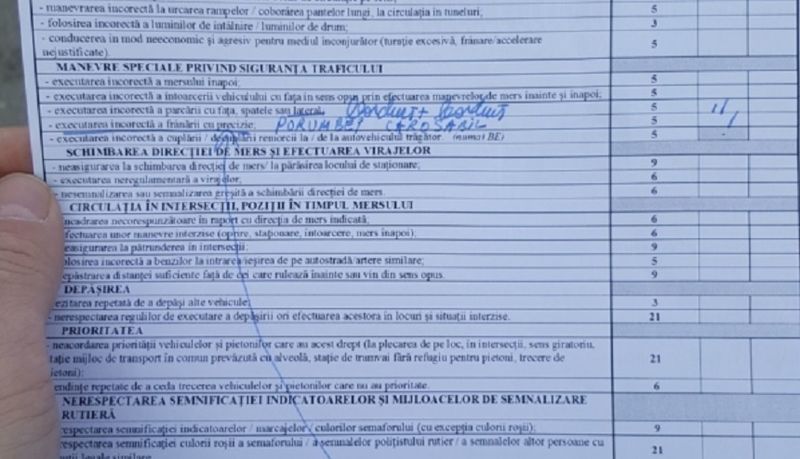 - manevrarea incorectă la urcarea rampelor / coborârea pantelor lungi, la circulația în tuneluri; 5
- folosirea incorectă a luminilor de întâlnire / luminilor de drum; 3
- conducerea în mod neeconomic și agresiv pentru mediul înconjurător (turație excesivă, frânare/accelerare nejustificate). 5
MANEVRE SPECIALE PRIVIND SIGURANȚA TRAFICULUI
- executarea incorectă a mersului înapoi; 5
- executarea incorectă a întoarcerii vehiculului cu fața în sens opus prin efectuarea manevrelor de mers înainte și înapoi; 5
- executarea incorectă a parcării cu fața, spatele sau lateral. 5
- executarea incorectă a frânării cu precizie; PORUMBEI CAROSABIL 5
- executarea incorectă a cuplării / remorcii la / de la autovehiculul trăgător. (numai BE) 5
SCHIMBAREA DIRECȚIEI DE MERS ȘI EFECTUAREA VIRAJELOR
- neasigurarea la schimbarea direcției de mers/ la părăsirea locului de staționare; 9
- executarea neregulamentară a virajelor; 6
- nesemnalizarea sau semnalizarea greșită a schimbării direcției de mers. 6
CIRCULAȚIA ÎN INTERSECȚII, POZIȚII ÎN TIMPUL MERSULUI
încadrarea necorespunzătoare în raport cu direcția de mers indicată; 6
efectuarea unor manevre interzise (oprire, staționare, întoarcere, mers înapoi); 6
neasigurarea la pătrunderea în intersecții; 9
folosirea incorectă a benzilor la intrarea/ieșirea de pe autostradă/artere similare; 5
nepăstrarea distanței suficiente față de cei care rulează înainte sau vin din sens opus. 9
DEPĂȘIREA
ezitarea repetată de a depăși alte vehicule; 3
- nerespectarea regulilor de executare a depășirii ori efectuarea acestora în locuri și situații interzise. 21
PRIORITATEA
- neacordarea priorității vehiculelor și pietonilor care au acest drept (la plecarea de pe loc, în intersecții, sens giratoriu,
stație mijloc de transport în comun prevăzută cu alveolă, stație de tramvai fără refugiu pentru pietoni, trecere de
pietoni); 21
tendințe repetate de a ceda trecerea vehiculelor și pietonilor care nu au prioritate. 6
NERESPECTAREA SEMNIFICAȚIEI INDICATOARELOR ȘI MIJLOACELOR DE SEMNALIZARE
RUTIERĂ
respectarea semnificației indicatoarelor / marcajelor / culorilor semaforului (cu excepția culorii roșii); 9
respectarea semnificației culorii roșii a semaforului / a semnalelor polițistului rutier / a semnalelor altor persoane cu 21